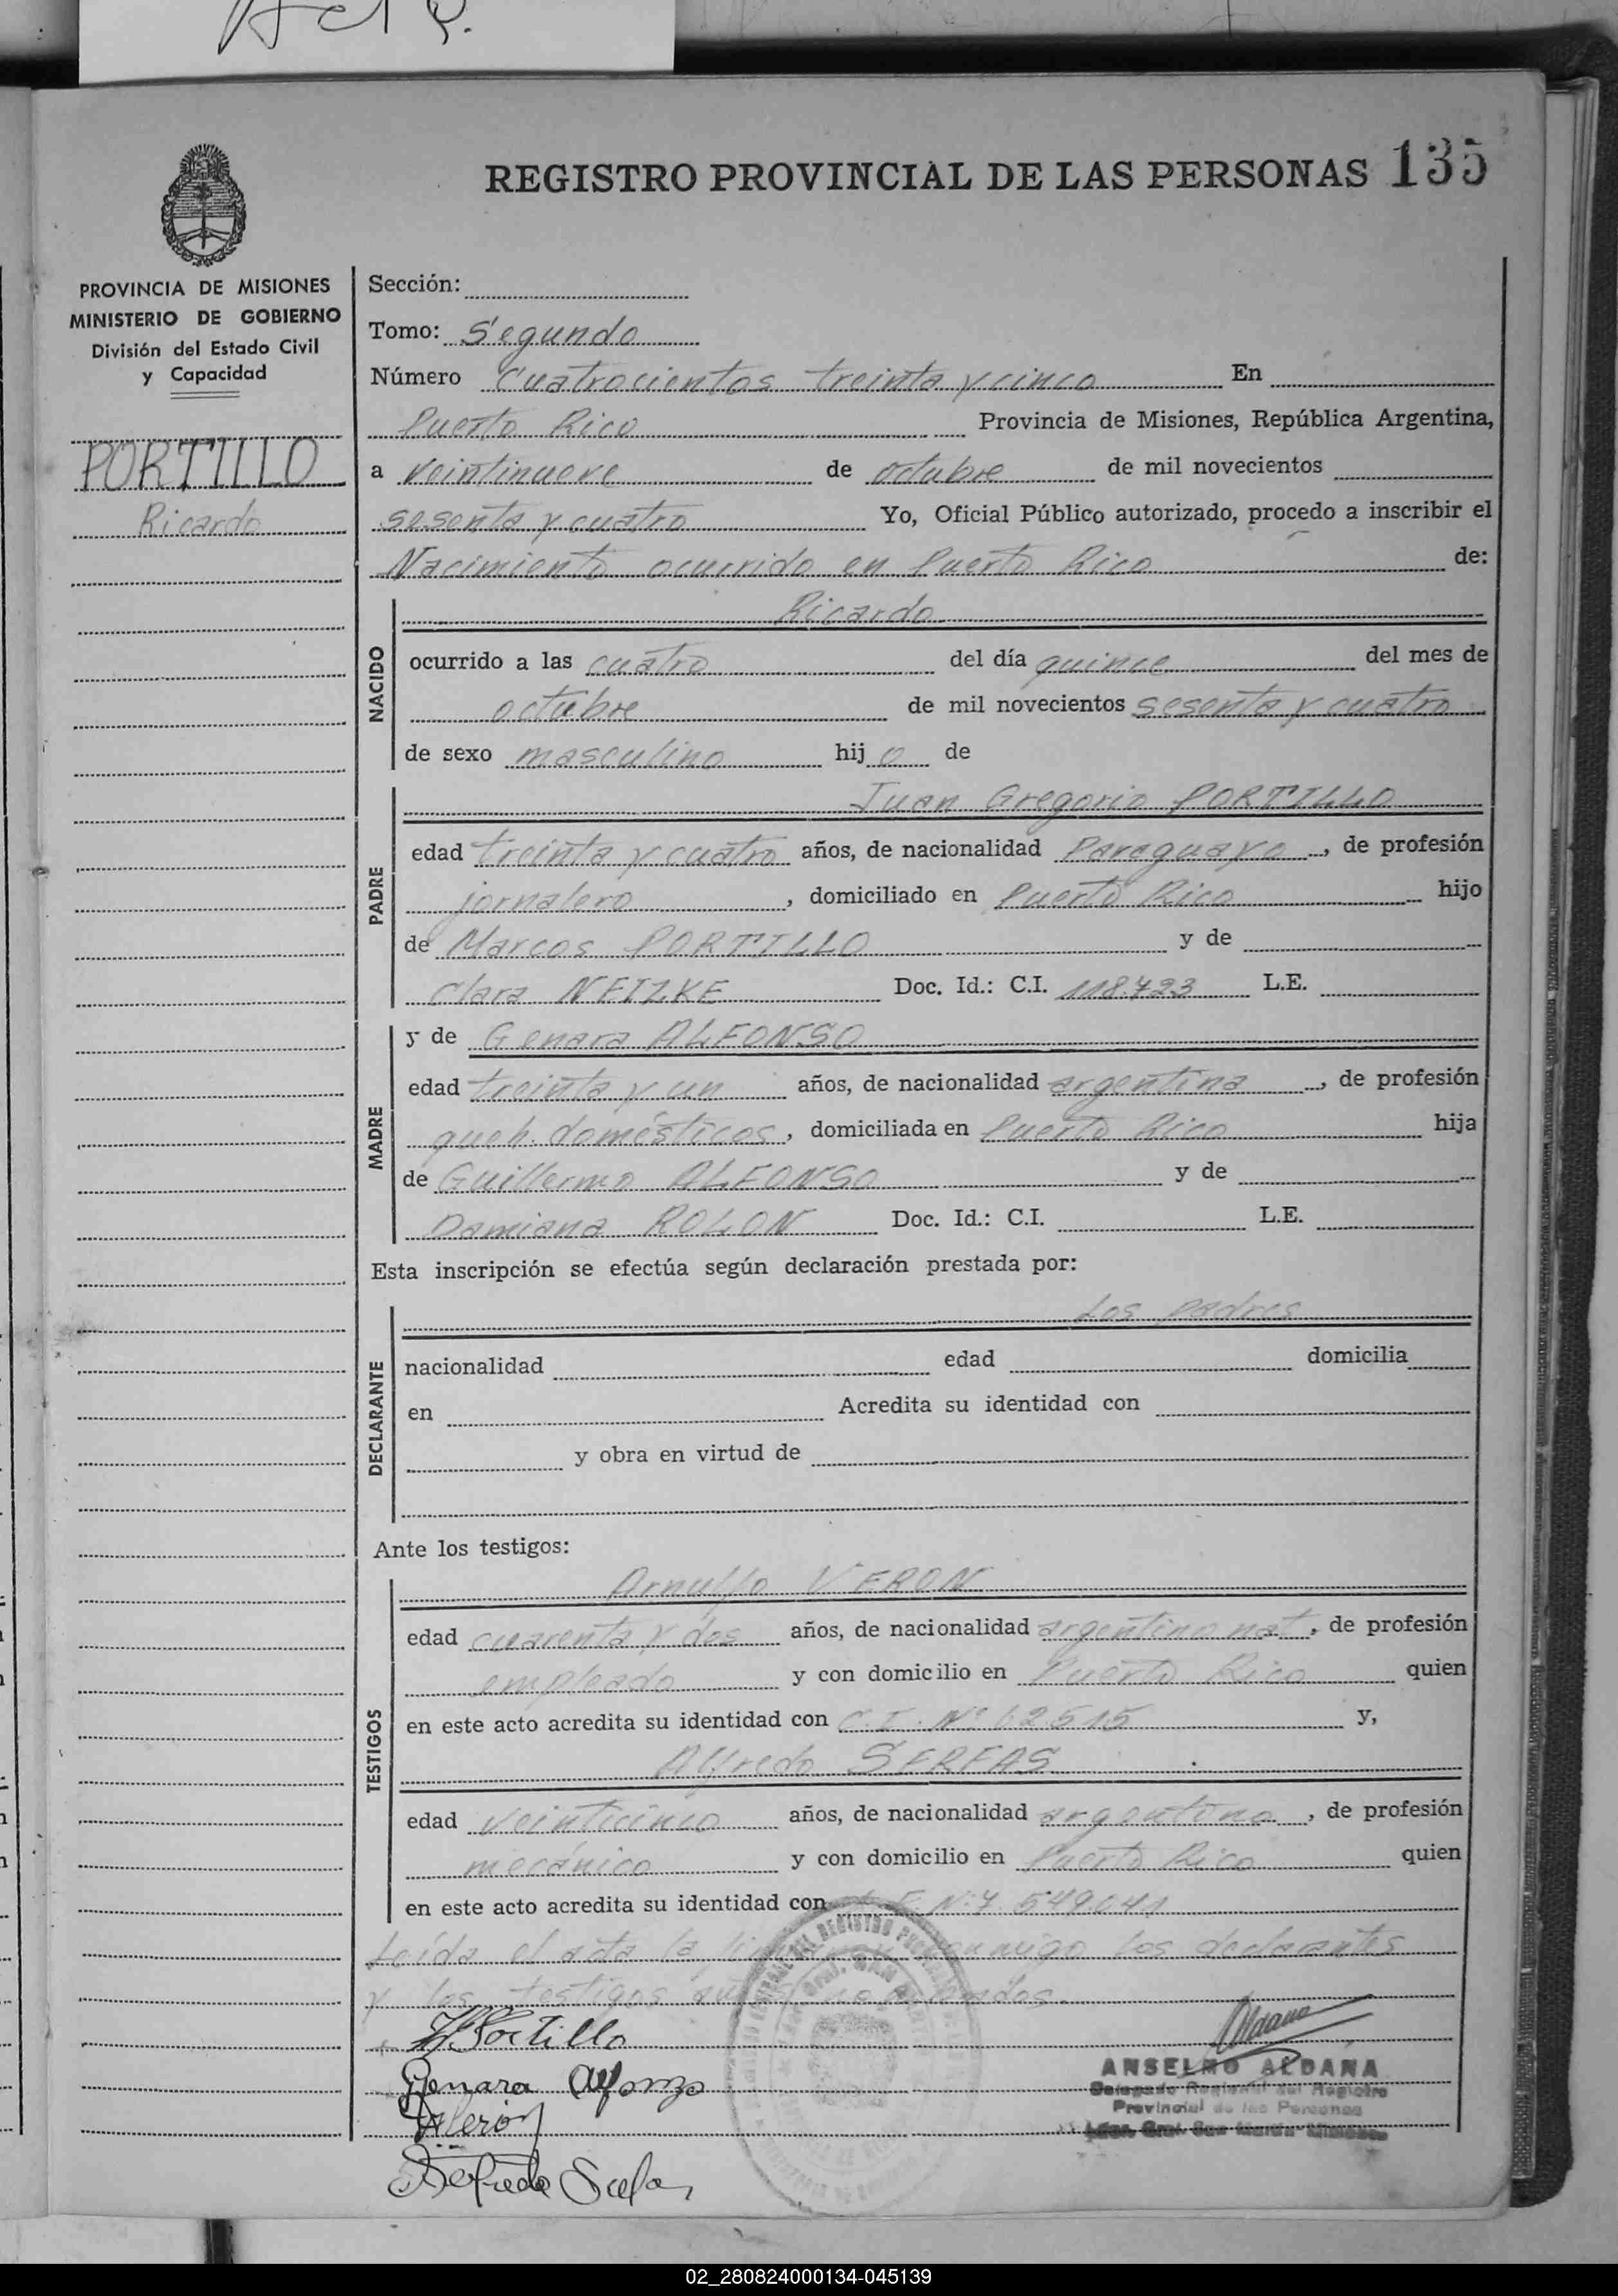 Act R.
REGISTRO PROVINCIAL DE LAS PERSONAS 135
PROVINCIA DE MISIONES
MINISTERIO DE GOBIERNO
División del Estado Civil
y Capacidad
PORTILLO
Ricardo
Sección:
Tomo: Segundo
Número Cuatrocientos treinta y cinco En
Puerto Rico Provincia de Misiones, República Argentina,
a veintinueve de octubre de mil novecientos
sesenta y cuatro Yo, Oficial Público autorizado, procedo a inscribir el
Nacimiento ocurrido en Puerto Rico de:
NACIDO
Ricardo
ocurrido a las cuatro del día quince del mes de
octubre de mil novecientos sesenta y cuatro
de sexo masculino hijo de
PADRE
Juan Gregorio PORTILLO
edad treinta y cuatro años, de nacionalidad Paraguayo, de profesión
jornalero, domiciliado en Puerto Rico hijo
de Marcos PORTILLO y de
Clara NEIZKE Doc. Id.: C.I. 118.723 L.E.
MADRE
y de Genara ALFONSO
edad treinta y un años, de nacionalidad argentina, de profesión
queh. domésticos, domiciliada en Puerto Rico hija
de Guillermo ALFONSO y de
Damiana ROLON Doc. Id.: C.I. L.E.
Esta inscripción se efectúa según declaración prestada por:
DECLARANTE
Los padres
nacionalidad edad domicilia
en Acredita su identidad con
y obra en virtud de
Ante los testigos:
TESTIGOS
Arnulfo VERON
edad cuarenta y dos años, de nacionalidad argentino nat, de profesión
empleado y con domicilio en Puerto Rico quien
en este acto acredita su identidad con C.I. Nº 62515 y,
Alfredo SERFAS
edad veinticinco años, de nacionalidad argentino, de profesión
mecánico y con domicilio en Puerto Rico quien
en este acto acredita su identidad con L.E. Nº 7.549.041
Leída el acta la conmigo los declarantes
y los testigos nombrados.
Portillo
Genara Alfonzo
Verón
Alfredo Serfas
Aldana
ANSELMO ALDANA
Delegado Regional del Registro
Provincial de las Personas
02_280824000134-045139